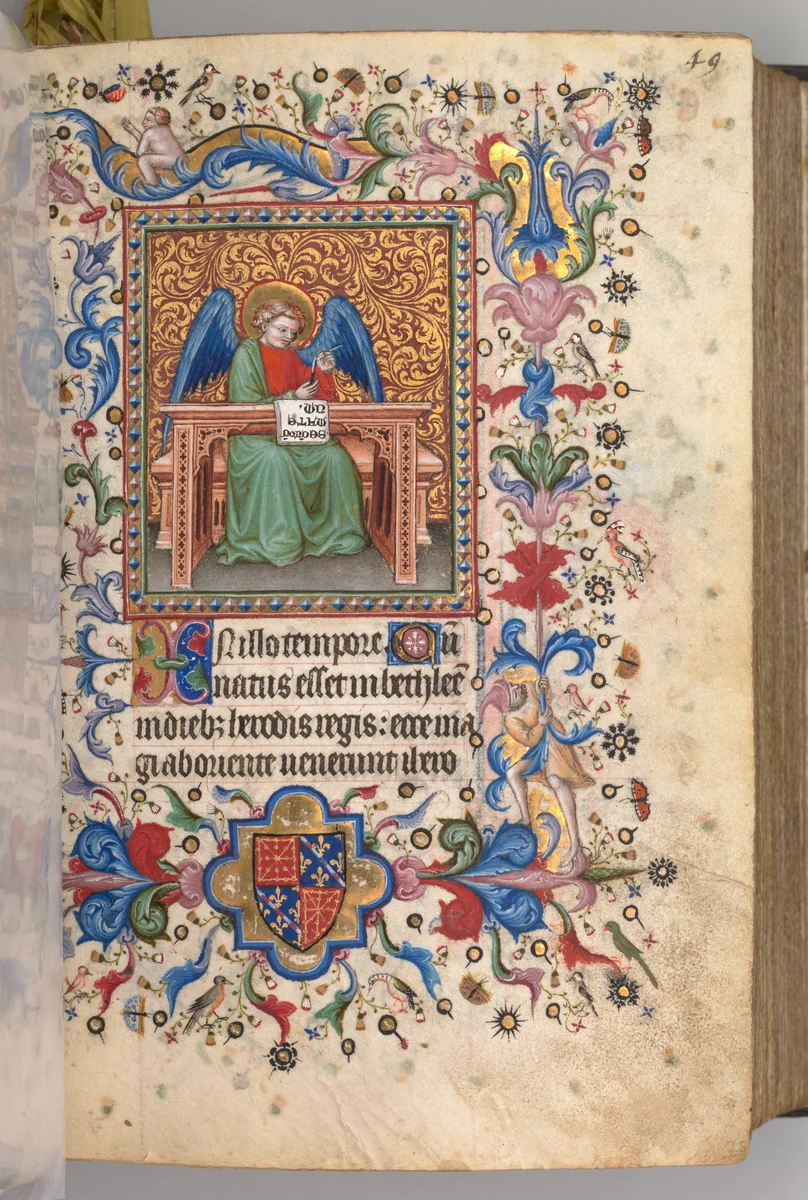 49
secūdū
matte
um.
In illo tempore. Cū
natus esset in bethleē
in dieb; herodis regis: ecce ma
gi ab oriente uenerunt ihero